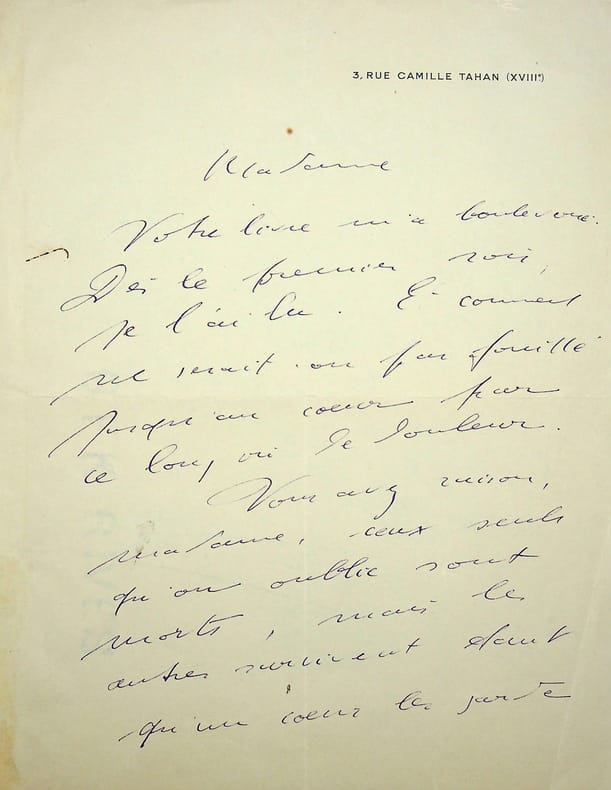 3, RUE CAMILLE TAHAN (XVIIIe)
Madame
Votre livre m'a bouleversé.
Dès le premier soir,
je l'ai lu. Et comment
ne serait-on pas fouillé
jusqu'au cœur par
ce long cri de douleur.
Vous avez raison,
madame, ceux seuls
qu'on oublie sont
morts, mais les
autres survivent
qu'un cœur les garde